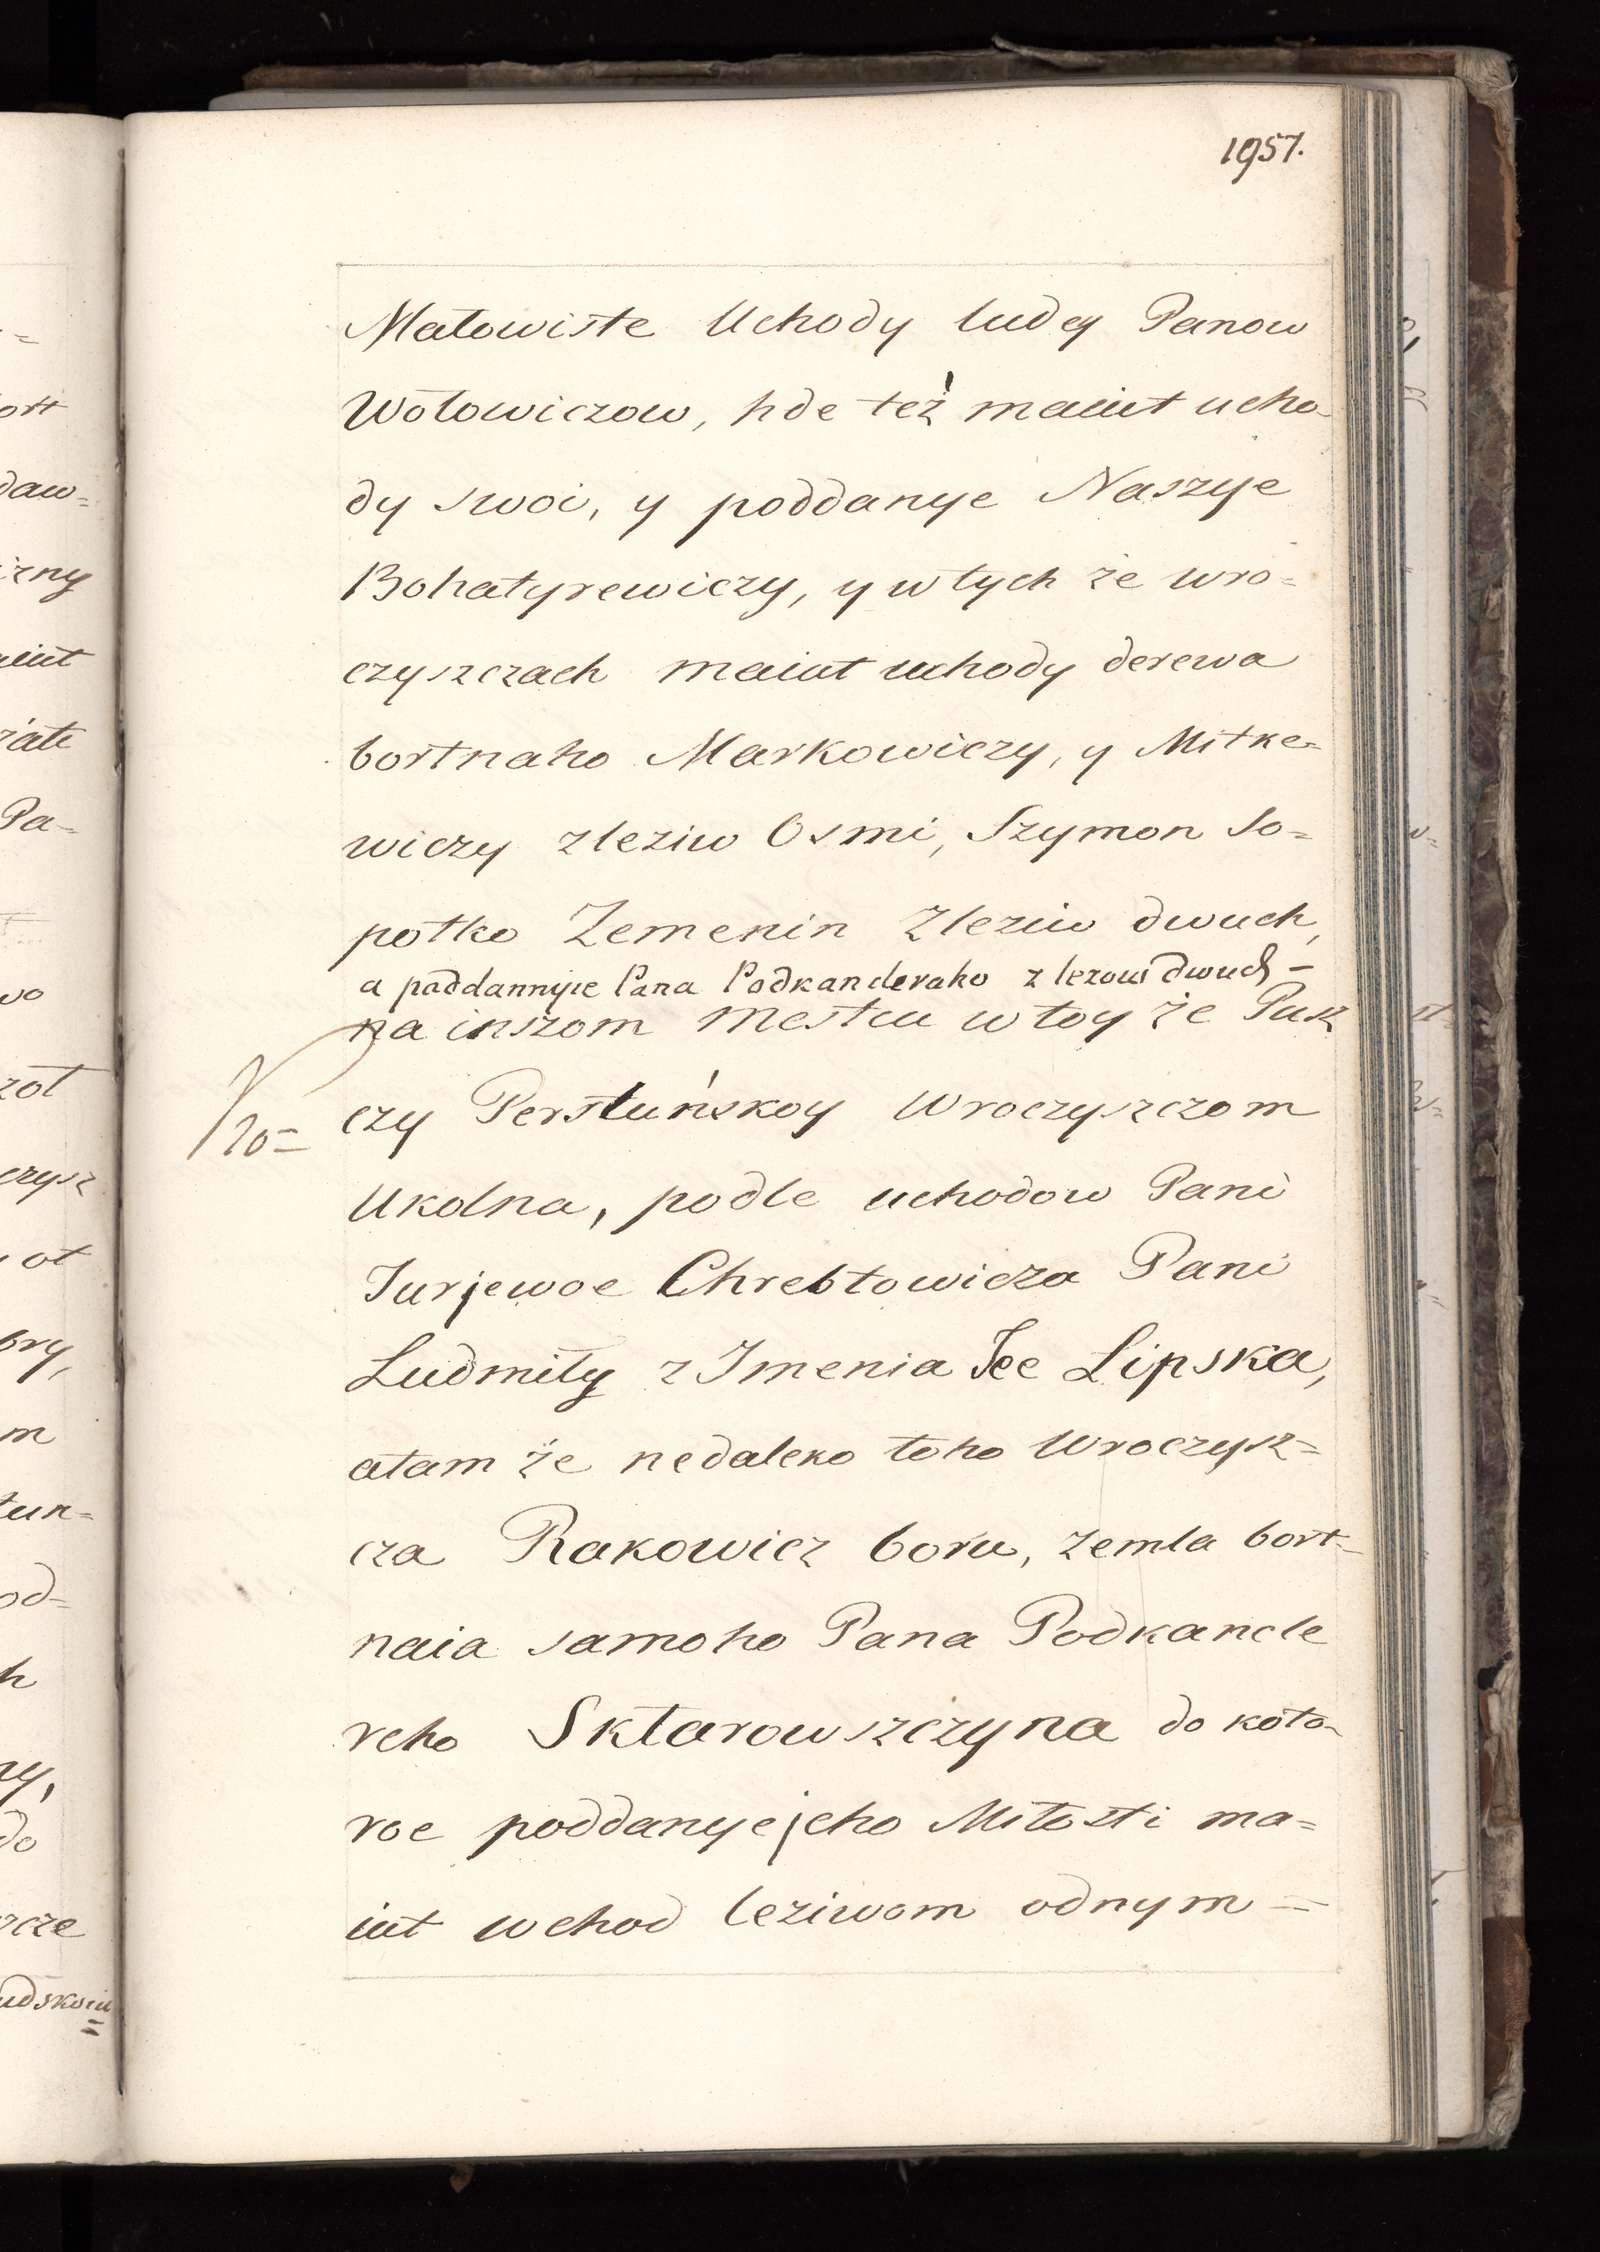 1957.
Małowiste Uchody ludey Panow
Wołowiczow, hde też maiut ucho-
dy swoi, y poddanye Naszye
Bohatyrewiczy, y w tych że wro=
czyszczach maiut uchody derewa
bortnaho Markowiczy, y Mitke=
wiczy zleziw Osmi, Szymon So=
potko Zemenin Zleziw dwuch,
a poddannyie Pana Podkanderaho z lezow dwuch –
na inszom mestcu w toy że Pusz
czy Perstuńskoy Wroczyszczom
Ukolna, podle uchodow Pani
Jurjewoe Chrebtowicza Pani
Ludmiły z Imenia Jee Lipska,
a tam że nedaleko toho Wroczysz=
cza Rakowicz boru, zemla bort=
naia samoho Pana Podkancle
reho Skłarowszczyna do koto-
roe poddanye jeho Miłosti ma=
iut wchod leziwom odnym =